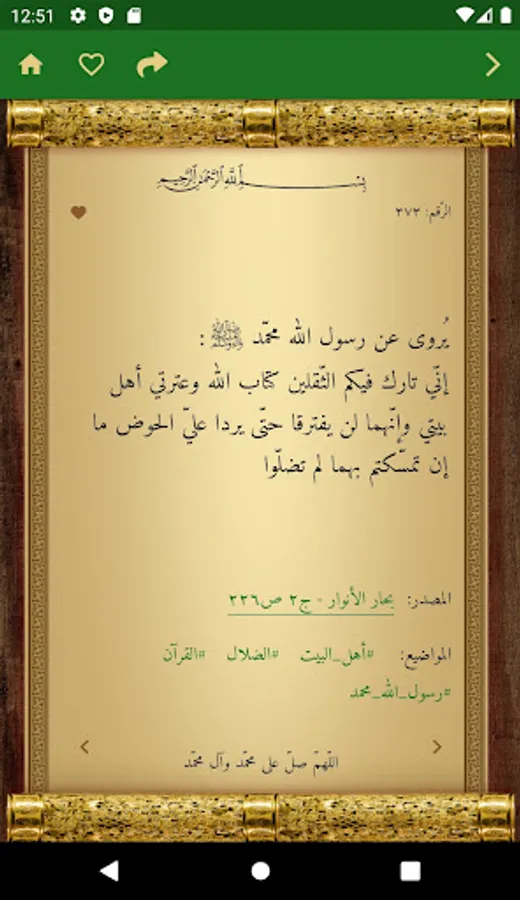 12:51
بِسْمِ اللهِ الرَّحْمٰنِ الرَّحِيمِ
الرّقم: ٣٧٣
يُروى عن رسول الله محمّد ﷺ :
إنّي تارك فيكم الثّقلين كتاب الله وعترتي أهل
بيتي وإنّهما لن يفترقا حتّى يردا عليّ الحوض ما
إن تمسّكتم بهما لم تضلّوا
المصدر: بحار الأنوار - ج٢ ص٢٢٦
المواضيع: #أهل_البيت #الضلال #القرآن
#رسول_الله_محمد
اللّهمّ صلّ على محمّد وآل محمّد